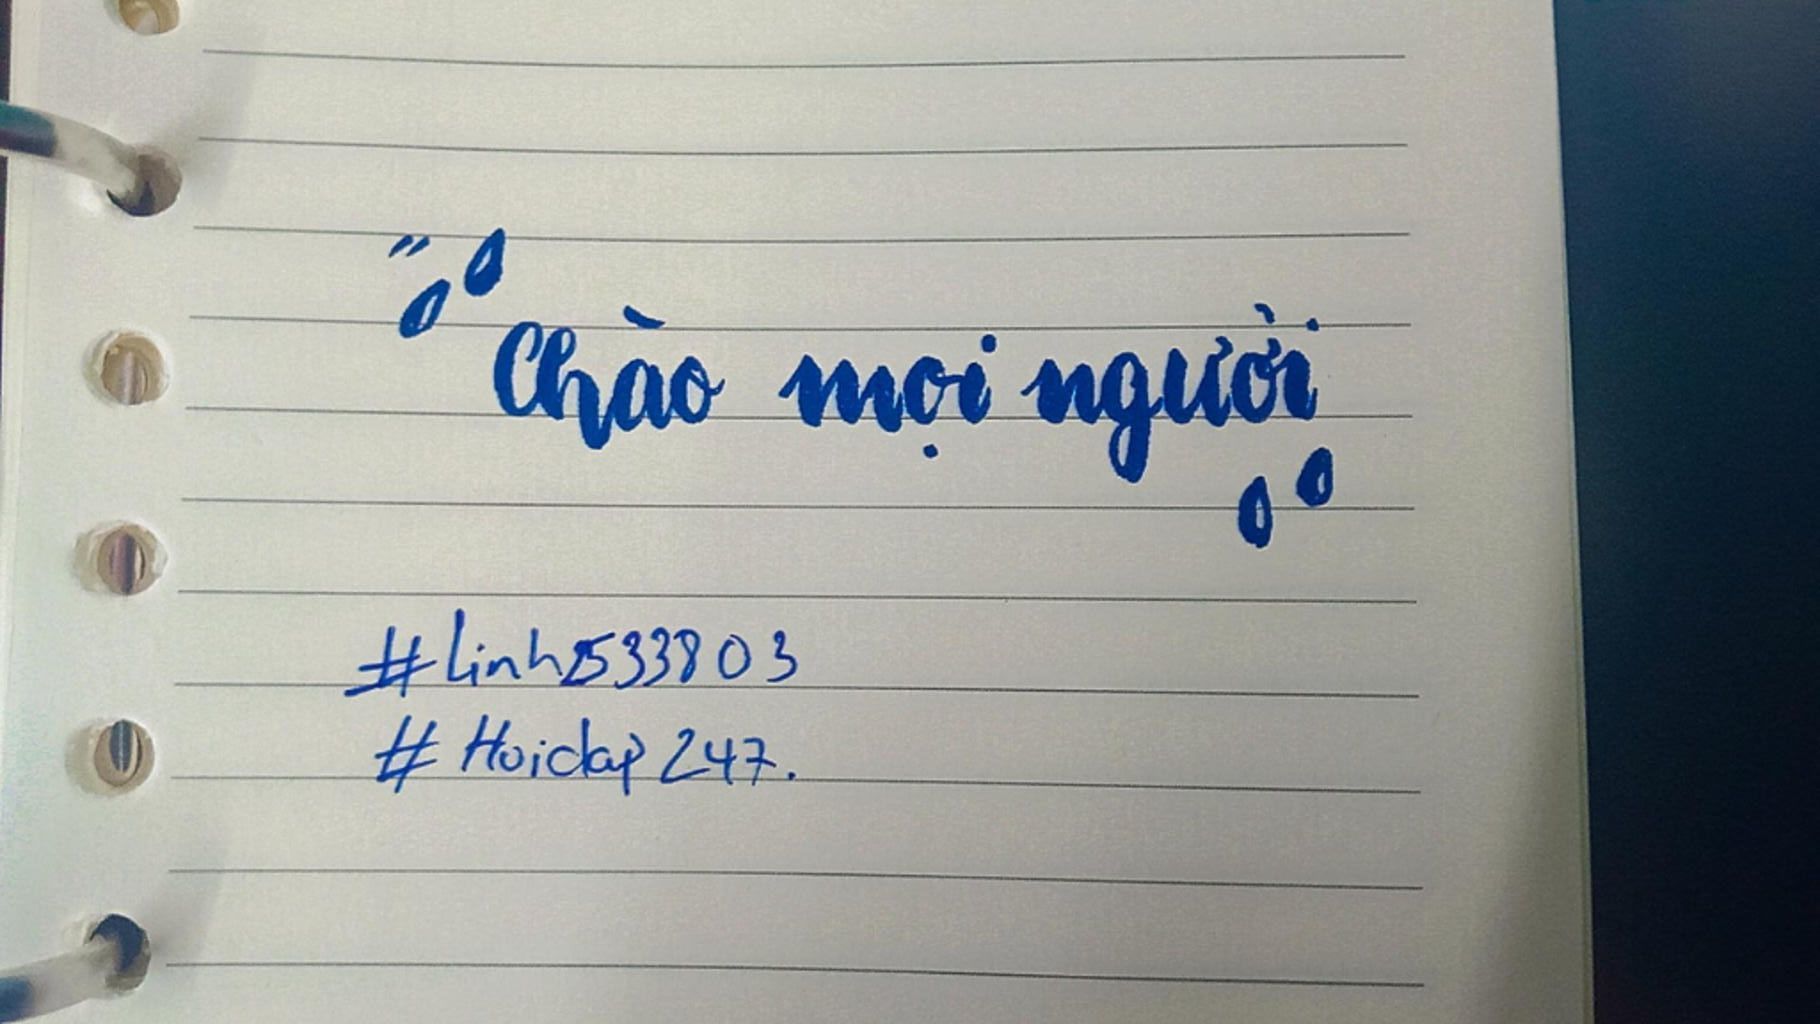 Chào mọi người
#linh533803
# Hoidap247.